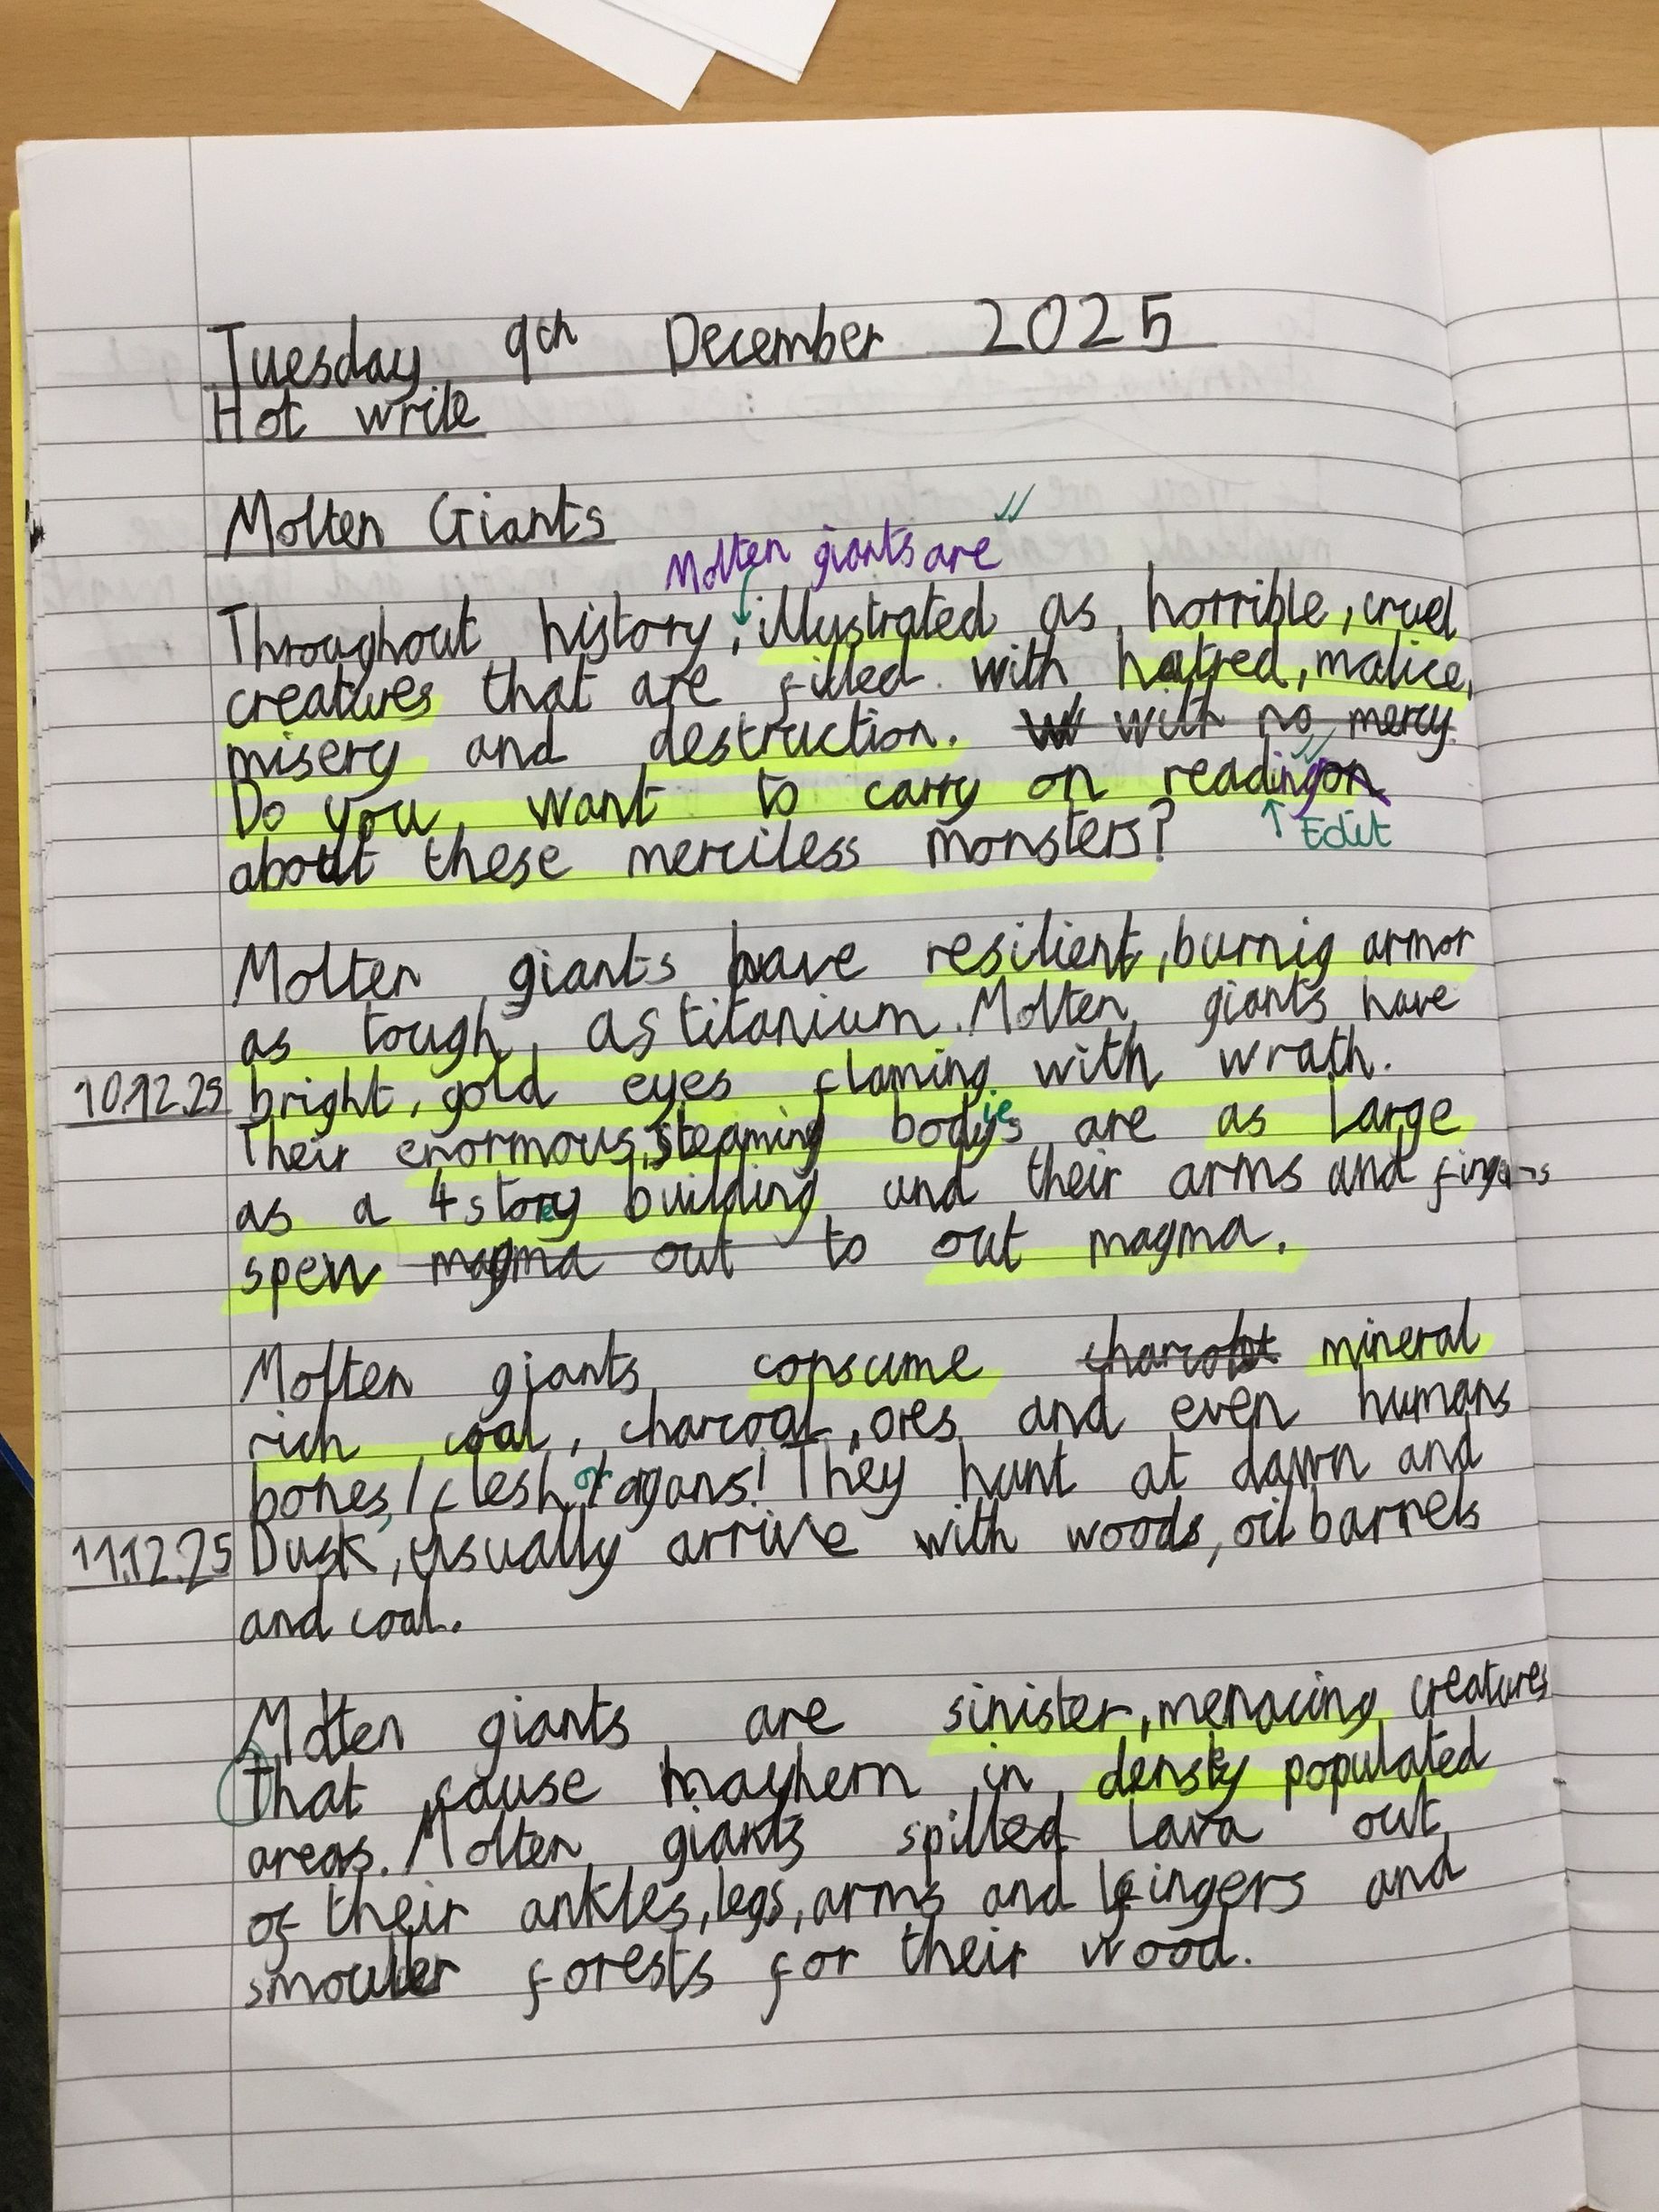 Tuesday 9th December 2025
Hot write
Molten Giants
Molten giants are
Throughout history, illustrated as horrible, cruel
creatures that are filled with hatred, malice,
misery and destruction. W with no mercy.
Do you want to carry on readingon
Edit
about these merciless monsters?
Molten giants have resilient, burnig armor
as tough as titanium. Molten giants have
10.12.25 bright, gold eyes flaming with wrath.
Their enormous, steaming bodies are as large
as a 4 storey building and their arms and fingers
spew magma out to out magma.
Molten giants consume charcoal mineral
rich coal, charcoal, ores and even humans
bones, / flesh or organs! They hunt at dawn and
11.12.25 Dusk, usually arrive with woods, oil barrels
and coal.
Molten giants are sinister, menacing creatures
That cause mayhem in populated
areas. Molten giants spilled lava out
of their ankles, legs, arms and fingers and
forests for their wood.